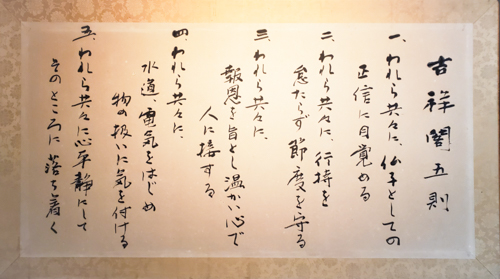 吉祥閣五則
一、われら共々に、仏子としての
正信に目覚める
二、われら共々に、行持を
怠たらず節度を守る
三、われら共々に、
報恩を旨とし温かい心で
人に接する
四、われら共々に、
水道、電気をはじめ
物の扱いに気を付ける
五、われら共々に心平静にして
そのところに落ち着く